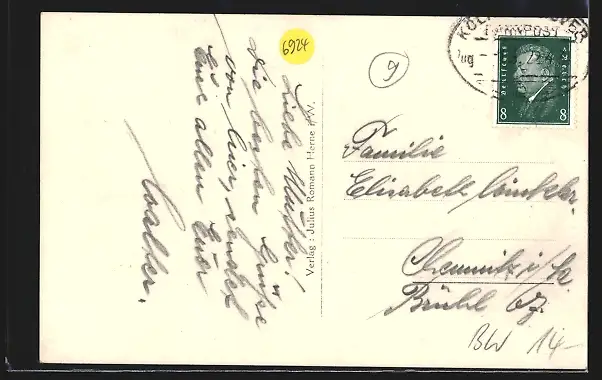 6924
9
KÖLN
BAHNPOST
Zug
Deutsches Reich
8 8
Liebe Mutter!
Die besten Grüße
von hier, sendet
Dir allen Euer
Walter.
Verlag: Julius Romann Herne i. W.
Familie
Elisabeth
Chemnitz i/Sa
Brühl 67.
BW 14-